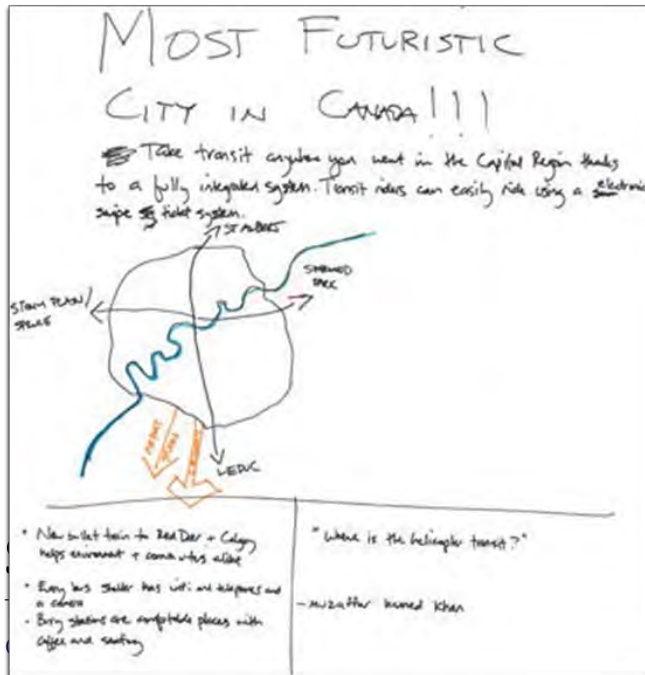 MOST FUTURISTIC
CITY IN CANADA!!!
Take transit anywhere you want in the Capital Region thanks
to a fully integrated system. Transit riders can easily ride using a electronic
swipe ticket system.
ST ALBERT
SHERWOOD
PARK
STONY PLAIN/
SPRUCE
LEDUC
• New bullet train to Red Deer + Calgary
helps environment + commuters alike
• Every bus shelter has wifi and telephones and
a camera
• Busy stations are comfortable places with
coffee and seating
"Where is the helicopter transit?"
- Muzaffar Khan